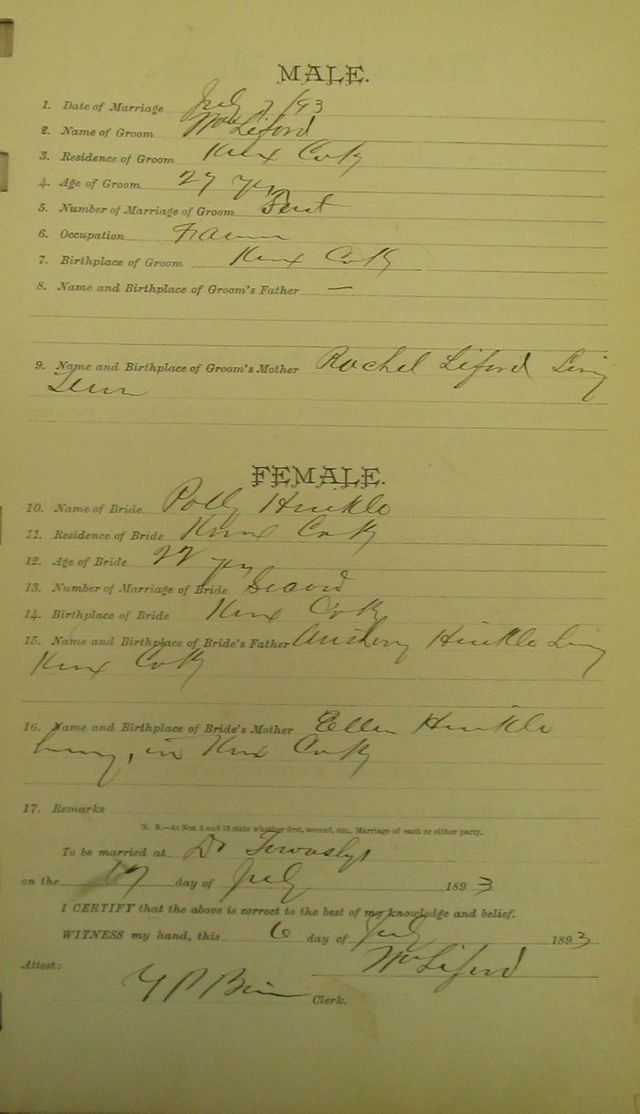 MALE.
1. Date of Marriage July 7/93
2. Name of Groom Wm Liford
3. Residence of Groom Knox Co Ky
4. Age of Groom 27 yrs
5. Number of Marriage of Groom First
6. Occupation Farmer
7. Birthplace of Groom Knox Co Ky
8. Name and Birthplace of Groom's Father —
9. Name and Birthplace of Groom's Mother Rachel Liford Living
Tenn
FEMALE.
10. Name of Bride Polly Hinkle
11. Residence of Bride Knox Co Ky
12. Age of Bride 22 yrs
13. Number of Marriage of Bride Second
14. Birthplace of Bride Knox Co Ky
15. Name and Birthplace of Bride's Father Hinkle Living
Knox Co Ky
16. Name and Birthplace of Bride's Mother Ellen Hinkle
living, in Knox Co Ky
17. Remarks
N. B.—At Nos. 5 and 13 state whether first, second, etc., Marriage of each or either party.
To be married at Dr
on the day of July 1893
I CERTIFY that the above is correct to the best of my knowledge and belief.
WITNESS my hand, this 6 day of July 1893
Wm Liford
Attest:
Clerk.